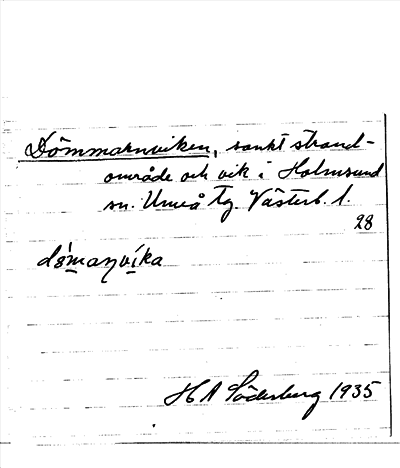 Dömmarnviken, sankt strand-
område och vik i Holmsund
sn. Umeå tg. Västerb. l.
28
HA Söderberg 1935